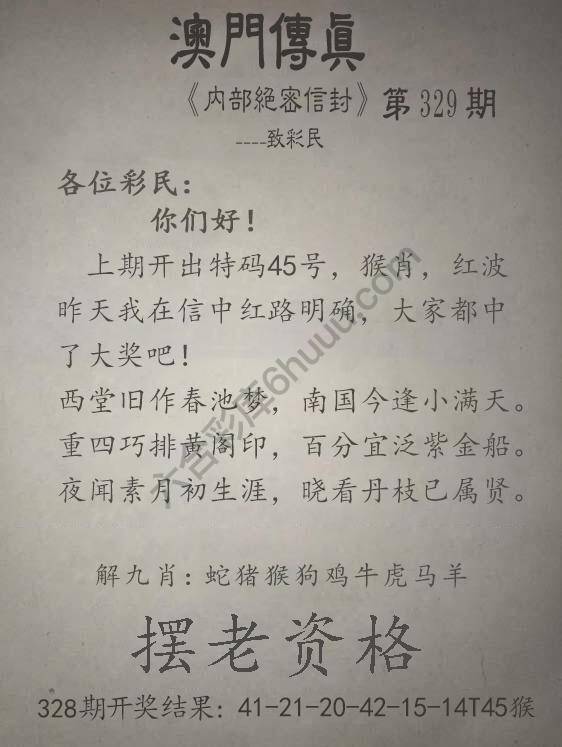 澳門傳眞
《内部絕密信封》第329期
----致彩民
各位彩民：
你们好！
上期开出特码45号，猴肖，红波
昨天我在信中红路明确，大家都中
了大奖吧！
西堂旧作春池梦，南国今逢小满天。
重四巧排黄阁印，百分宜泛紫金船。
夜闻素月初生涯，晓看丹枝已属贤。
六合彩库6huuu.com
解九肖：蛇猪猴狗鸡牛虎马羊
摆老资格
328期开奖结果：41-21-20-42-15-14T45猴